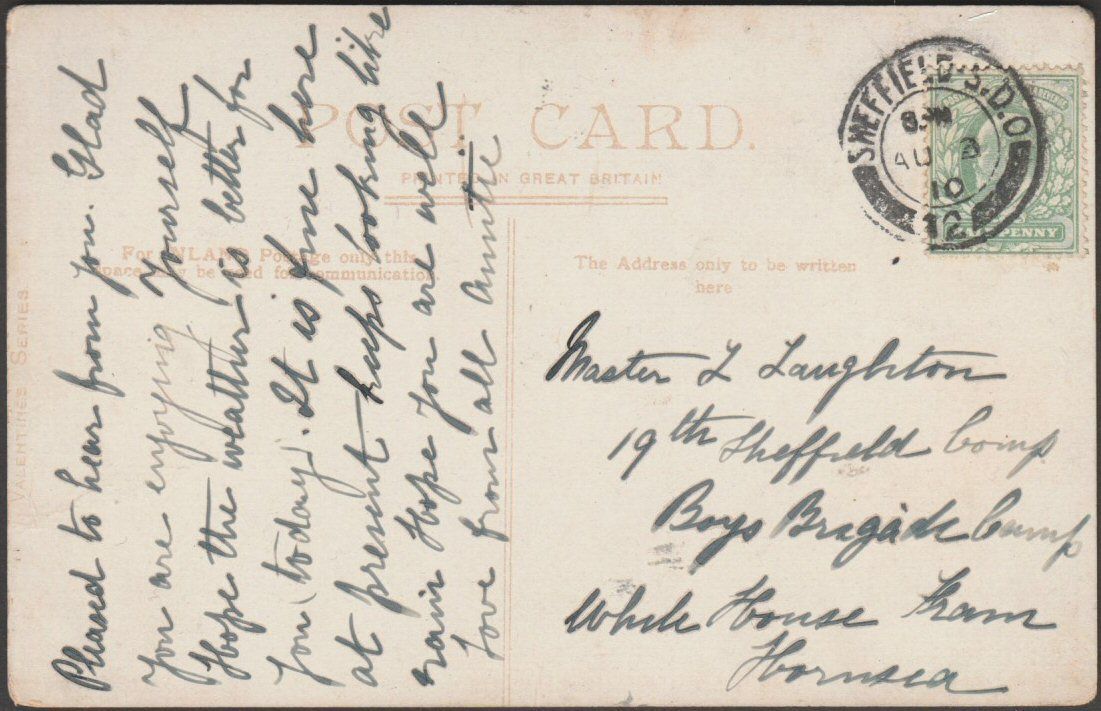 Pleased to hear from you. Glad
you are enjoying yourself
Hope the weather is better for
you (today). It is fine here
at present keeps looking like
rain Hope you are well
Love from all Auntie
POST CARD.
PRINTED IN GREAT BRITAIN
For INLAND Postage only this
space may be used for communication.
The Address only to be written
here
VALENTINES SERIES
SHEFFIELD·S.D.O
AU 3
10
12
HALFPENNY
Master L Laughton
19th Sheffield Comp
Boys Brigade Camp
White House Fram
Hornsea